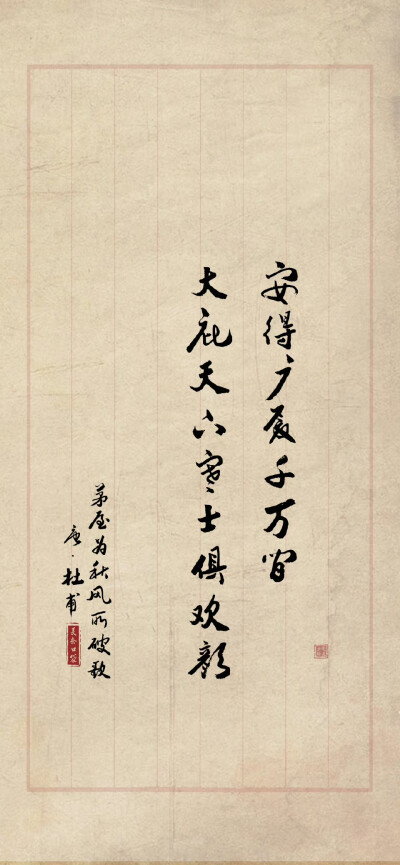 安得广厦千万间
大庇天下寒士俱欢颜
茅屋为秋风所破歌
唐·杜甫